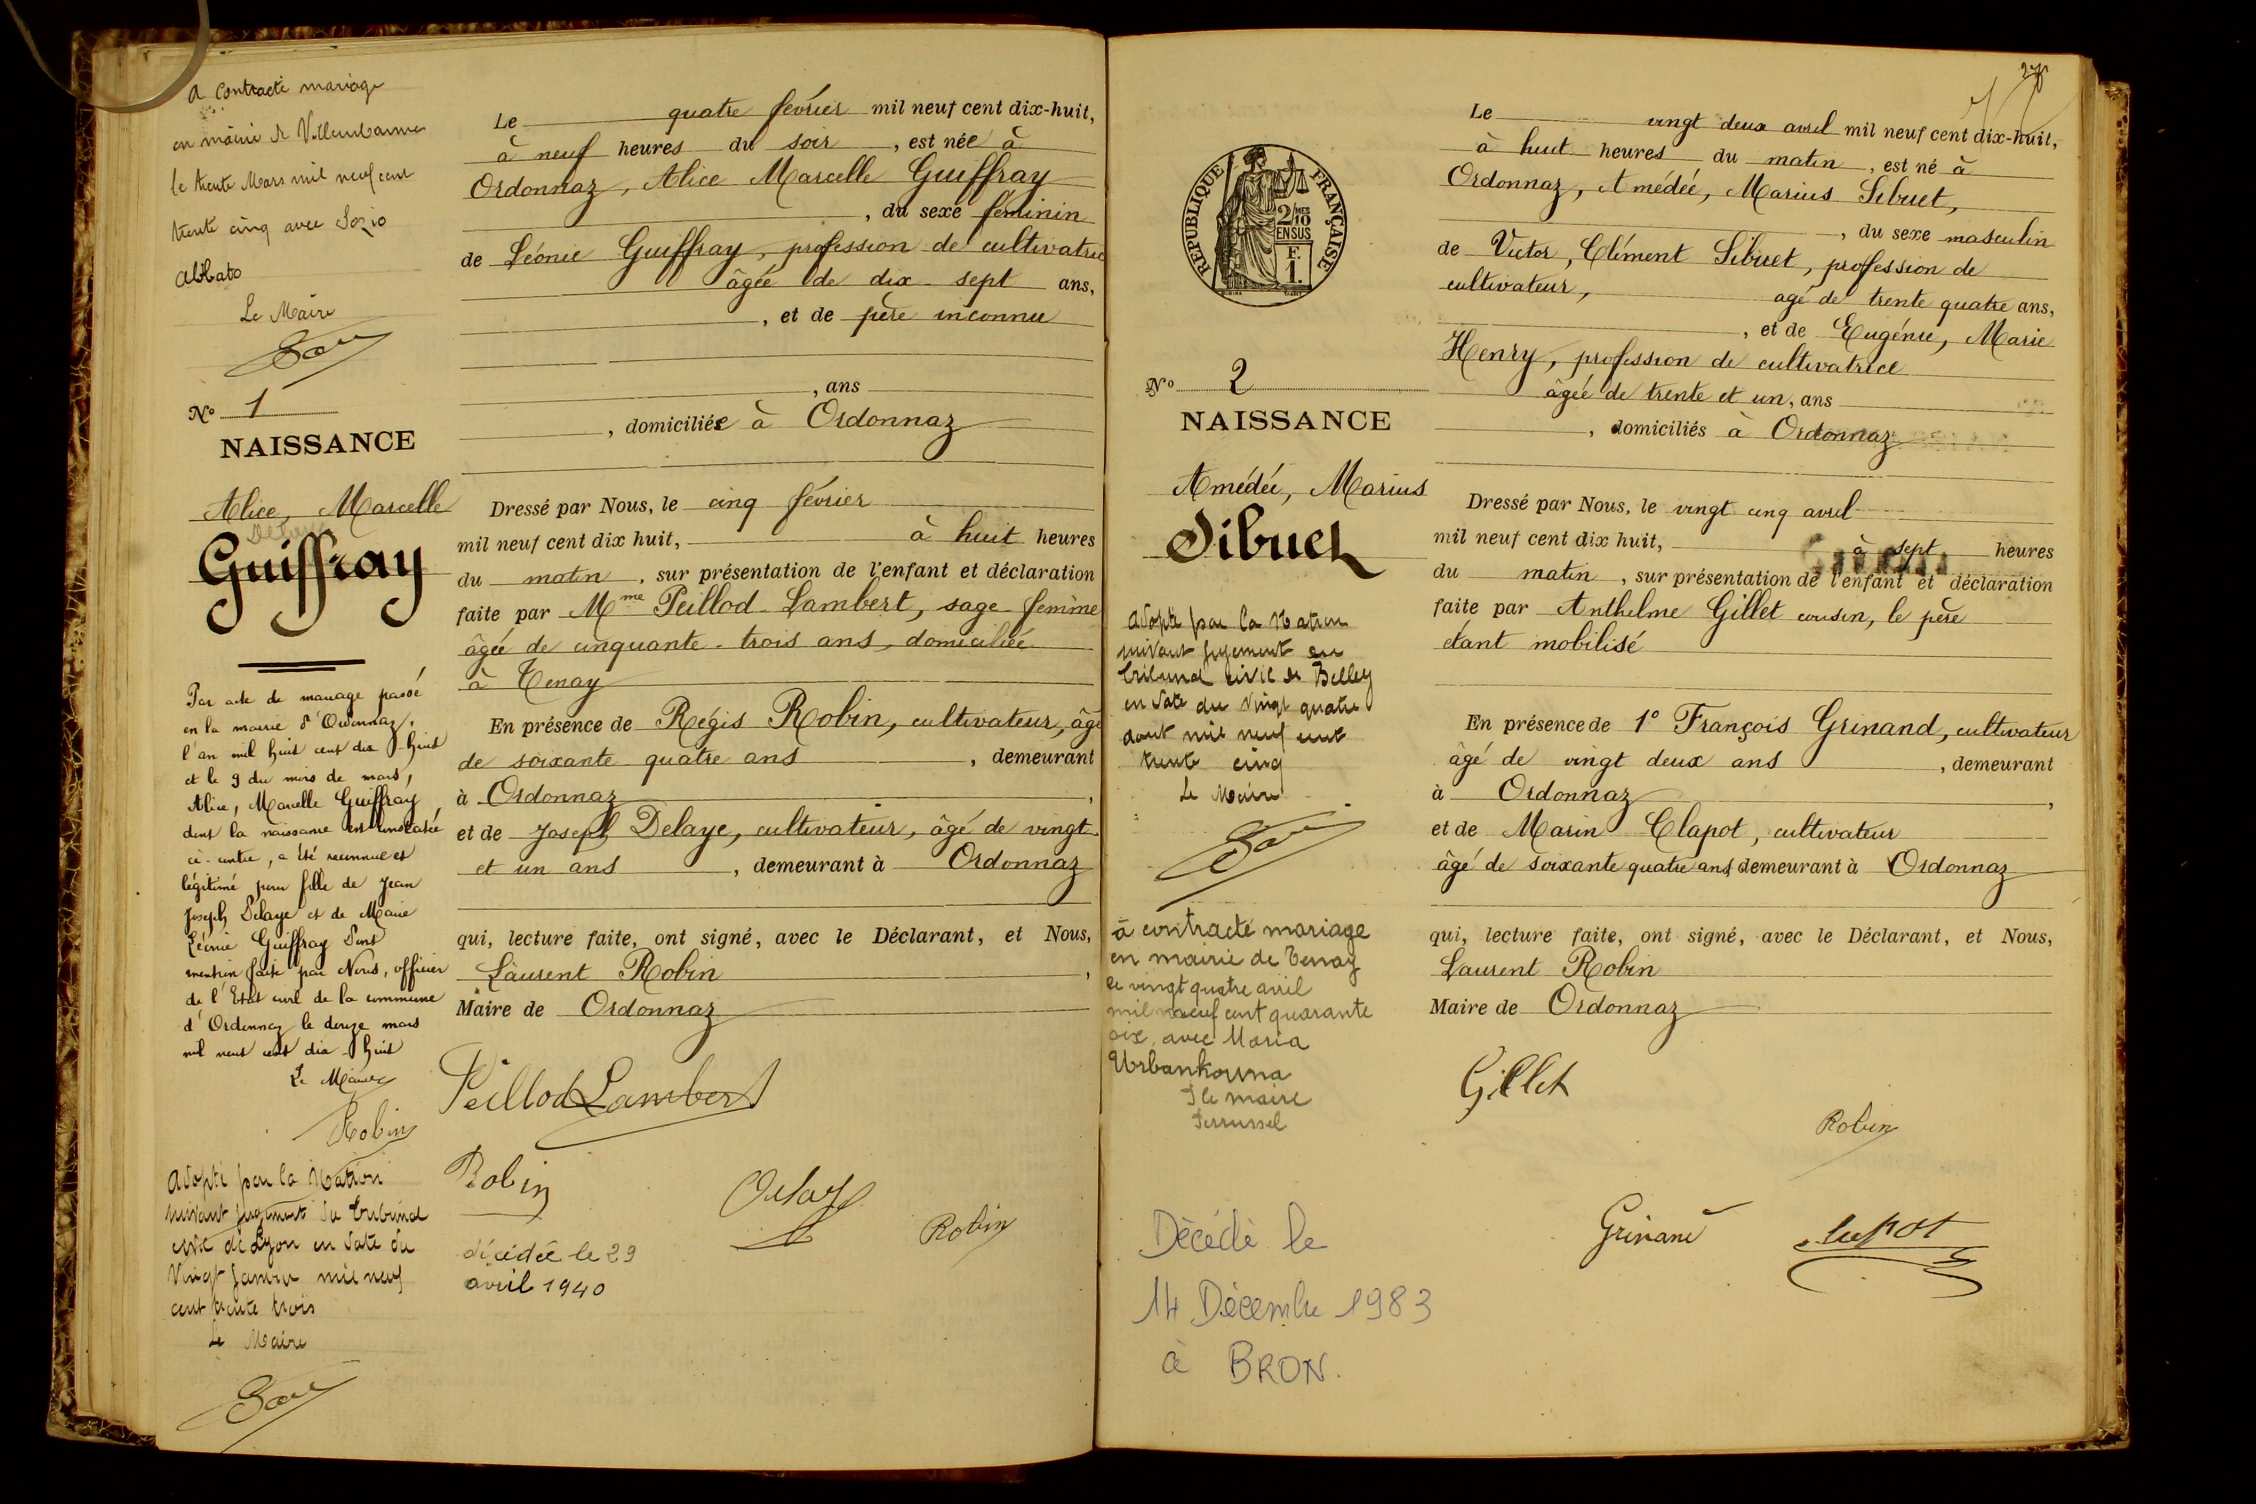 a contracté mariage
en mairie de Villeurbanne
le trente Mars mil neuf cent
trente cinq avec Sozio
Abbato
Le Maire
N° 1
NAISSANCE
Alice, Marcelle
Delaye
Guiffray
Par acte de mariage passé
en la mairie d'Ordonnaz,
l'an mil huit cent dix-huit
et le 9 du mois de mars,
Alice, Marcelle Guiffray,
dont la naissance est constatée
ci-contre, a été reconnue et
légitimé pour fille de Jean
Joseph Delaye et de Marie
Léonie Guiffray Dont
mention faite par Nous, officier
de l'Etat civil de la commune
d'Ordonnaz le douze mars
mil neuf cent dix-huit
Le Maire
Robin
Adopté par la Nation
suivant jugement du tribunal
civil de Lyon en date du
vingt janvier mil neuf
cent trente trois
Le Maire
Le quatre février mil neuf cent dix-huit,
à neuf heures du soir, est née à
Ordonnaz, Alice Marcelle Guiffray
, du sexe féminin
de Léonie Guiffray, profession de cultivatrice
âgée de dix-sept ans,
, et de père inconnu
, ans
, domiciliée à Ordonnaz
Dressé par Nous, le cinq février
mil neuf cent dix huit, à huit heures
du matin, sur présentation de l'enfant et déclaration
faite par Mme Peillod-Lambert, sage-femme
âgée de cinquante-trois ans, domiciliée
à Tenay
En présence de Régis Robin, cultivateur, âgé
de soixante quatre ans, demeurant
à Ordonnaz,
et de Joseph Delaye, cultivateur, âgé de vingt
et un ans, demeurant à Ordonnaz
qui, lecture faite, ont signé, avec le Déclarant, et Nous,
Laurent Robin,
Maire de Ordonnaz
Peillod Lambert
Robin
Delaye
Robin
décédée le 29
avril 1940
RÉPUBLIQUE FRANÇAISE
2/10MES
EN SUS
F.
1.
N° 2
NAISSANCE
Amédée, Marius
Sibuet
Adopté par la Nation
suivant jugement du
tribunal civil de Belley
en date du vingt quatre
aout mil neuf cent
trente cinq
Le Maire
à contracté mariage
en mairie de Tenay
le vingt quatre avril
mil neuf cent quarante
six, avec Maria
Urbankowna
Le maire
Décédé le
14 Décembre 1983
à BRON.
Le vingt deux avril mil neuf cent dix-huit,
à huit heures du matin, est né à
Ordonnaz, Amédée, Marius Sibuet,
, du sexe masculin
de Victor, Clément Sibuet, profession de
cultivateur, agé de trente quatre ans,
, et de Eugénie, Marie
Henry, profession de cultivatrice
âgée de trente et un, ans
, domiciliés à Ordonnaz
Dressé par Nous, le vingt cinq avril
mil neuf cent dix huit, à sept heures
du matin, sur présentation de l'enfant et déclaration
faite par Anthelme Gillet cousin, le père
étant mobilisé
En présence de 1° François Grinand, cultivateur
âgé de vingt deux ans, demeurant
à Ordonnaz,
et de Marin Clapot, cultivateur
âgé de soixante quatre ans, demeurant à Ordonnaz
qui, lecture faite, ont signé, avec le Déclarant, et Nous,
Laurent Robin
Maire de Ordonnaz
Gillet
Robin
Grinand
Clapot